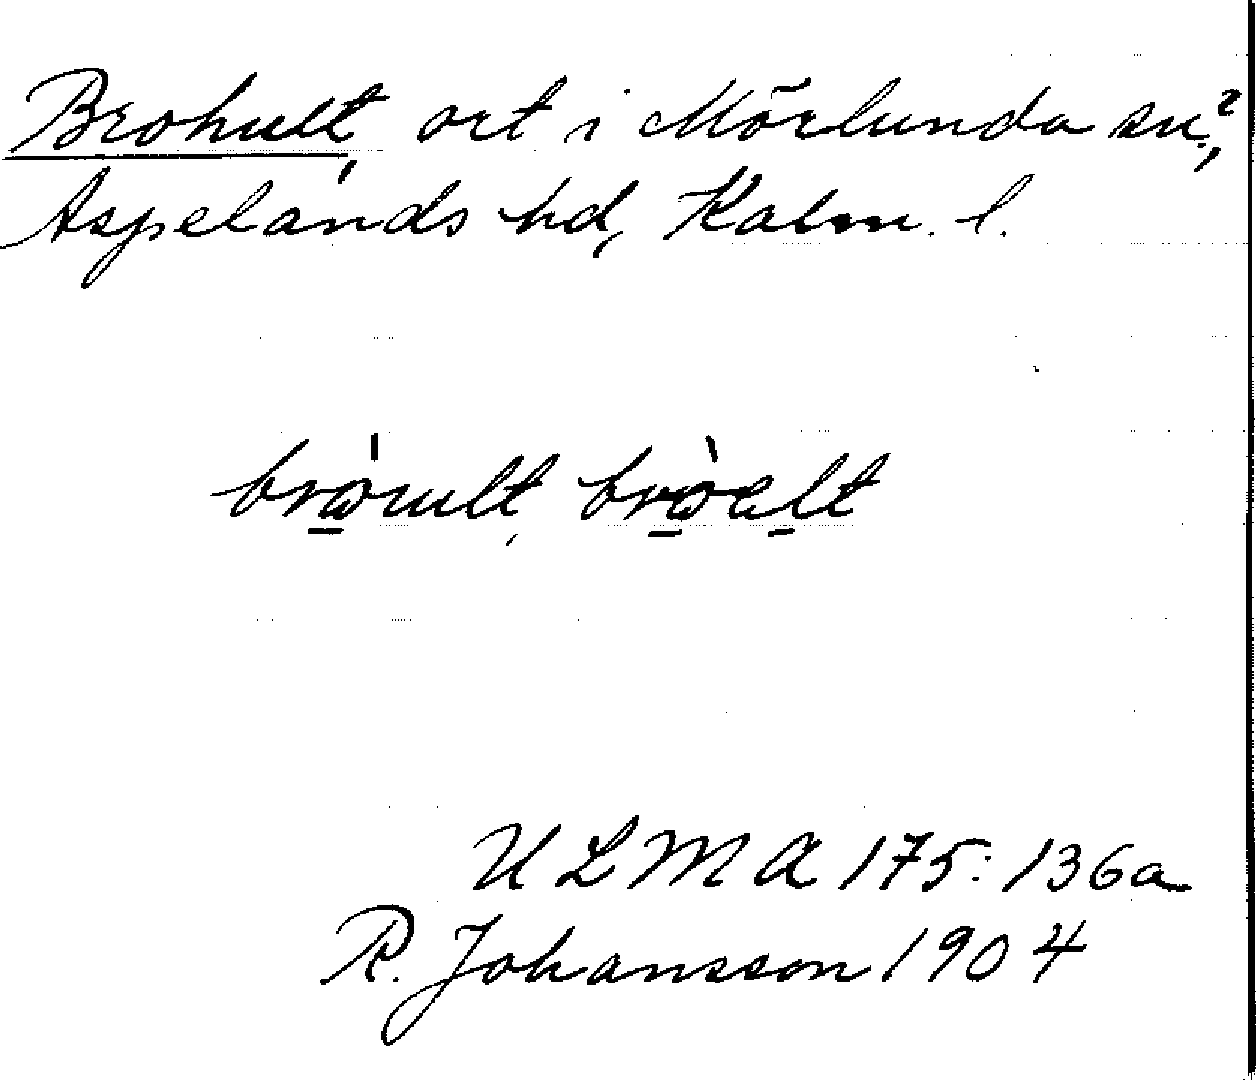 Brohult, ort i Mörlunda sn?,
Aspelands hd, Kalm. l.
bròult, bròelt
ULMA 175:136a
R. Johansson 1904